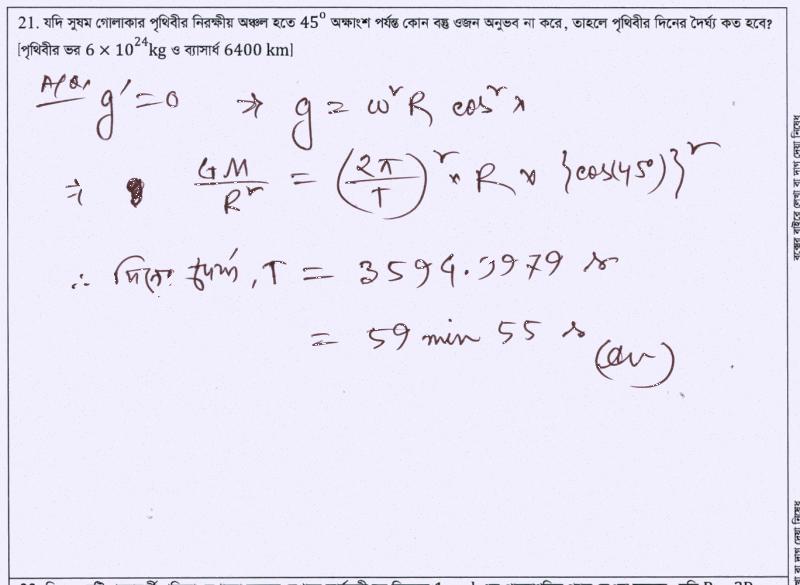 21. যদি সুষম গোলাকার পৃথিবীর নিরক্ষীয় অঞ্চল হতে 45° অক্ষাংশ পর্যন্ত কোন বস্তু ওজন অনুভব না করে, তাহলে পৃথিবীর দিনের দৈর্ঘ্য কত হবে?
[পৃথিবীর ভর 6 × 10²⁴kg ও ব্যাসার্ধ 6400 km]
g' = 0 ⇒ g = ω² R cos² λ
⇒ GM/R² = (2π/T)² × R × {cos(45°)}²
∴ দিনের দৈর্ঘ্য, T = 3594.3979 s
= 59 min 55 s (Ans)
বক্সের বাইরে লেখা বা দাগ দেয়া নিষেধ
বা দাগ দেয়া নিষেধ